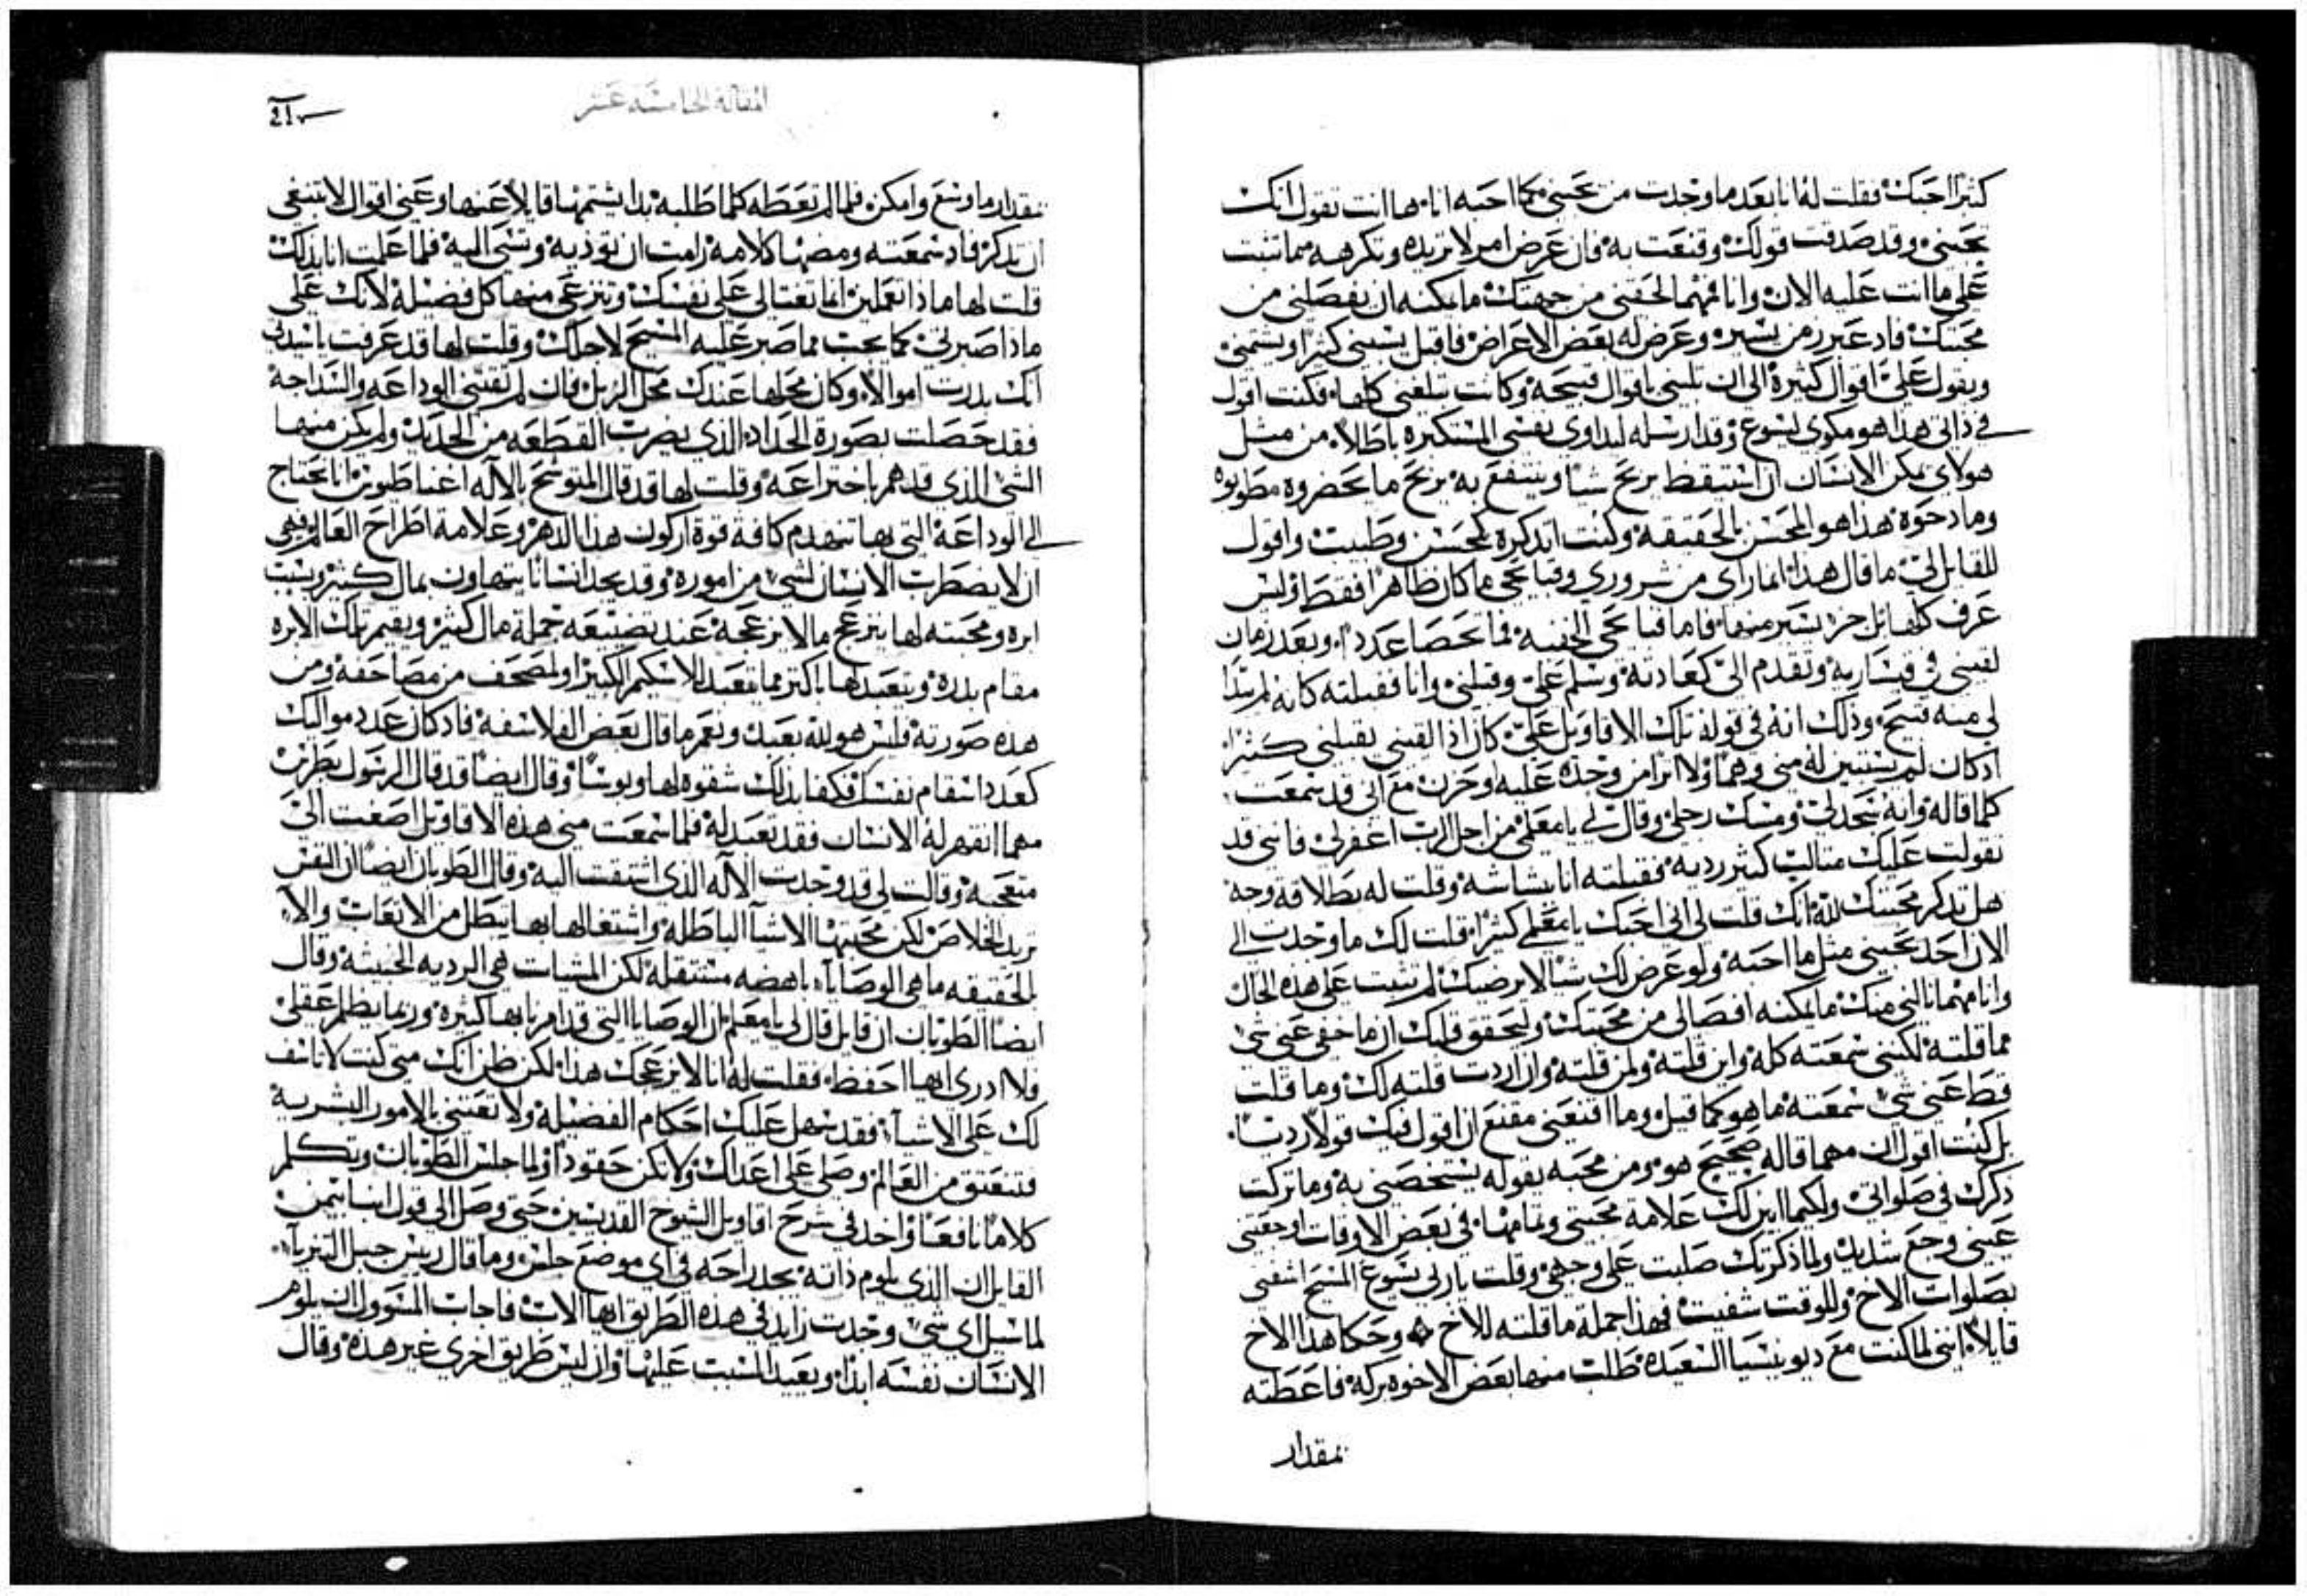 كثيرًا احبك فقلت له انا بعد ما وجدت من يحبني كما احبه انا ها انت تقول انك
تحبني وقد صدقت قولك وقنعت به فان عرض امر لا تريده وتكرهه مما تثبت
على ما انت عليه الان وانا فمهما لحقني من جهتك ما يمكنه ان يفصلني من
محبتك فاد عبر زمن يسير وعرض له بعض الاعراض فاقبل يسبني كثيرًا ويشتمني
ويقول علي اقوال كثيرة الى ان باقوال قبيحة وكانت تبلغني كلها فكنت اقول
في ذاتي هذا هو مكوي يسوع وقد ارسله ليداوي نفسي المستكبره باطلا من مثل
هولاي يمكن الانسان ان استيقظ يربح شيا وينتفع به يربح ما يخضروه
وما دحوه هذا هو المحسن بالحقيقه وكنت اتدكره كمحسن وطبيب واقول
للقايل لي ما قال هذا انما راى من شروري وقبايحي ما كان ظاهرًا فقط وليس
عرف كلها بل جز يسير منها فاما قبايحي الخفيه فما تحصا عددًا وبعد زمان
لقيني في قيساريه وتقدم الي كعادته وسلم علي وقبلني وانا فقبلته كانه لم يبدا
لي منه قبيح وذلك انه في قوله تلك الاقاويل علي كان اذا لقيني يقبلني كثيرًا
اذ كان لم يستبين له مني وهمًا ولا اثرا من وجده عليه او حزن مع اني قد سمعت
كلما قاله وانه سجد لي ومسك رجلي وقال لي يا معلمي من اجل الرب اغفر لي فانني قد
تقولت عليك مثالب كثير رديه فقبلته انا ببشاشه وقلت له بطلاقة وجه
هل تدكر محبتك لله انك قلت لي اني احبك يا معلمي كثيرًا قلت لك ما وجدت الي
الان احد يحبني مثل ما احبه ولو عرض لك شيا لا يرضيك لم تثبت على هذه الحال
وانا مهما نالني منك ما يمكنه افصالي من محبتك وليحقق قلبك ان ما خفي عني شي
مما قلته لكنني سمعته كله واين قلته ولمن قلته وان اردت قلته لك وما قلت
قط عني شي سمعته ما هو كما قيل وما اقنعني مقنع ان اقول فيك قولًا رديًا
بل كنت اقول ان مهما قاله صحيح هو ومن محبه يقوله يستخصني به وما تركت
ذكرك في صلواتي ولكيما ابين لك علامة محبتي وتمامها في بعض الاوقات اوجعتني
عيني وجع شديد ولما ذكرتك صلبت على وجهي وقلت يا ربي يسوع المسيح اشفني
بصلوات الاخ وللوقت شفيت فهذا جملة ما قلته للاخ وحكا هذا الاخ
قايلًا انني لما كنت مع ديونيسيا السعيده طلب منها بعض الاخوه بركه فاعطته
بمقدار
المقالة الخامسة عشر
بمقدار ما وسع وامكن فلما لم تعطه كلما طلبه بدا يشتمها قايلًا عنها وعني اقوال لا تنبغي
ان تدكر فاد سمعته ومضها كلامه رامت ان توذيه وتشي اليه فلما علمت انا بذلك
قلت لها ماذا تعملين انما تغتالي على نفسك وتنزعي منها كل فضيلة لانك على
ماذا صبرتي كما يجب مما صبر عليه المسيح لاجلك وقلت لها قد عرفت يا سيدتي
انك بدرت اموالًا وكان محلها عندك محل الزبل فان لم تقتني الوداعه والسداجة
فقد حصلت بصورة الحداد الذي يضرب القطعه من الحديد ولم يكن منها
الشي الذي قد هم باختراعه وقلت لها قد قال المتوشح بالآله اغناطيوس انا نحتاج
الى الوداعة التي بها تنهدم كافة قوة اركون هذا الدهر وعلامة اطراح العالم هي
ان لا يضطرب الانسان لشي من اموره وقد نجد انسانا يتهاون بمال كثير وبسبب
ابره ومحبته لها ينزعج ما لا يزعجه عند تضييعه جملة مال كثير ويقيم تلك الابره
مقام بدره ويتعبد لها باكتر مما يتعبد للاسكيم الكبير او لمصحف من مصاحفه ومن
هذه صورته فليس هو لله بعبد ونعم ما قال بعض الفلاسفه فاد كان عدد مواليك
كعدد اسقام نفسك فكفا بذلك شقوه لها وبوسًا وقال ايضًا قد قال الرسول بطرس
مهما انقهر له الانسان فقد تعبد له فلما سمعت مني هذه الاقاويل اصغت الي
متعجبه وقالت لي قد وجدت الآله الذي اشتقت اليه وقال الطوبان ايضًا ان النفس
تريد الخلاص لكن محبتها الاشيا الباطله واشتغالها بها يبطل من الاتعاب والا
بالحقيقه ما هي الوصايا باهضه مستثقله لكن المشيات هي الرديه الخبيثه وقال
ايضًا الطوبان ان قايل قال لي يا معلم ان الوصايا التي قد امرنا بها كثيره وربما يظلم عقلي
ولا ادري ايها احفظ فقلت له انا لا يزعجك هذا لكن ظن انك متى كنت لا تاسف
لك على الاشيا فقد سهل عليك احكام الفضيلة ولا تعتني بالامور البشرية
فتنعتق من العالم وصلي على اعداك ولا تكن حقودًا ولما جلس الطوبان وتكلم
كلامًا نافعًا واخد في شرح اقاويل الشيوخ القديسين حتى وصل الى قول انبا بيمن
القايل ان الذي يلوم ذاته يجد راحه في اي موضع جلس وما قال ريس جبل النيريا
لما سيل اي شي وجدت زايد في هذه الطريق ايها الاب فاجاب المسوول ان يلوم
الانسان نفسه ابدًا ويعيد السبب عليها وان ليس طريق اخرى غير هذه وقال